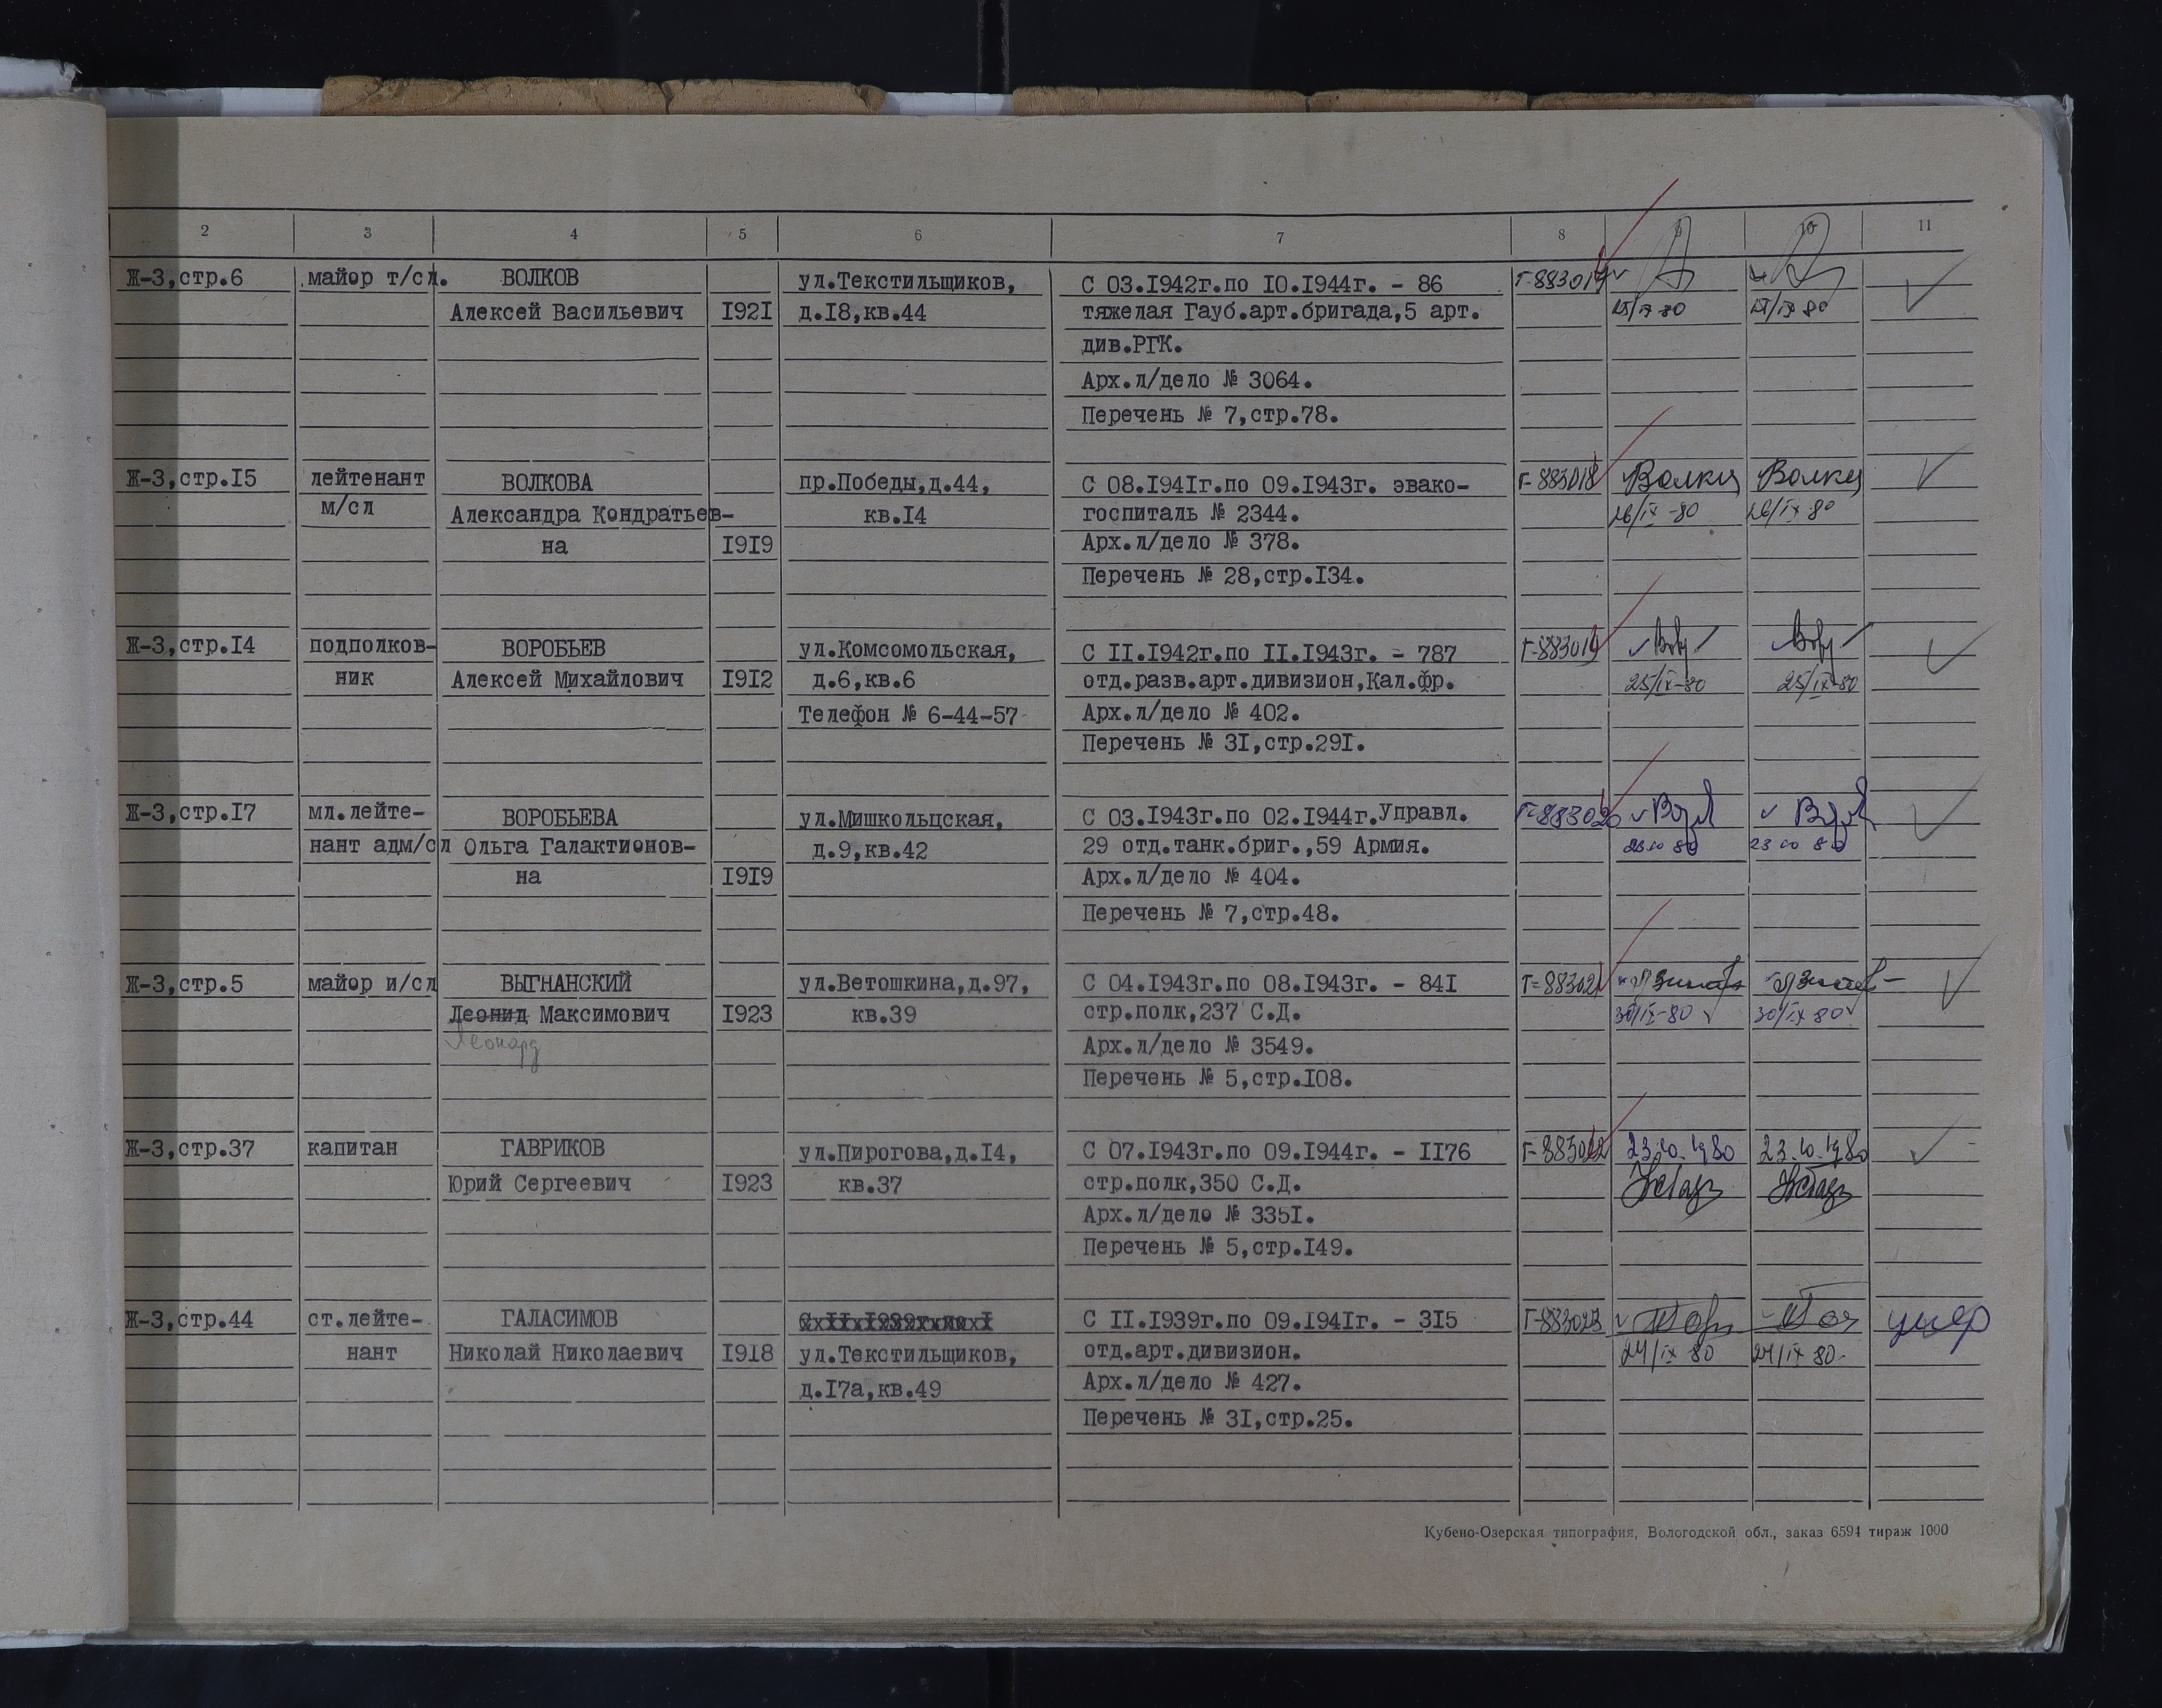 2 3 4 5 6 7 8 9 10 11
Ж-3,стр.6 майор т/сл. ВОЛКОВ ул.Текстильщиков, С 03.I942г.по I0.I944г. - 86 Г-883017
Алексей Васильевич I92I д.I8,кв.44 тяжелая Гауб.арт.бригада,5 арт. 25/IX-80 25/IX 80
див.РГК.
Арх.л/дело № 3064.
Перечень № 7,стр.78.
Ж-3,стр.I5 лейтенант ВОЛКОВА пр.Победы,д.44, С 08.I94Iг.по 09.I943г. эвако- Г-883018
м/сл Александра Кондратьев- кв.I4 госпиталь № 2344. 26/IX-80 26/IX 80
на I9I9 Арх.л/дело № 378.
Перечень № 28,стр.I34.
Ж-3,стр.I4 подполков- ВОРОБЬЕВ ул.Комсомольская, С II.I942г.по II.I943г. - 787 Г-883019
ник Алексей Михайлович I9I2 д.6,кв.6 отд.разв.арт.дивизион,Кал.фр. 25/IX-80 25/IX-80
Телефон № 6-44-57 Арх.л/дело № 402.
Перечень № 3I,стр.29I.
Ж-3,стр.I7 мл.лейте- ВОРОБЬЕВА ул.Мишкольцская, С 03.I943г.по 02.I944г.Управл. Г-883020
нант адм/сл Ольга Галактионов- д.9,кв.42 29 отд.танк.бриг.,59 Армия. 23 10 80 23 10 80
на I9I9 Арх.л/дело № 404.
Перечень № 7,стр.48.
Ж-3,стр.5 майор и/сл ВЫГНАНСКИЙ ул.Ветошкина,д.97, С 04.I943г.по 08.I943г. - 84I Г-883021
Леонид Максимович I923 кв.39 стр.полк,237 С.Д. 30/IX-80 30/IX 80
Леонард Арх.л/дело № 3549.
Перечень № 5,стр.I08.
Ж-3,стр.37 капитан ГАВРИКОВ ул.Пирогова,д.I4, С 07.I943г.по 09.I944г. - II76 Г-883022 23.10.1980 23.10.1980
Юрий Сергеевич I923 кв.37 стр.полк,350 С.Д.
Арх.л/дело № 335I.
Перечень № 5,стр.I49.
Ж-3,стр.44 ст.лейте- ГАЛАСИМОВ С II.I939г.по С II.I939г.по 09.I94Iг. - 3I5 Г-883023 умер
нант Николай Николаевич I9I8 ул.Текстильщиков, отд.арт.дивизион. 24/IX 80 24/IX 80
д.I7а,кв.49 Арх.л/дело № 427.
Перечень № 3I,стр.25.
Кубено-Озерская типография, Вологодской обл., заказ 6594 тираж 1000